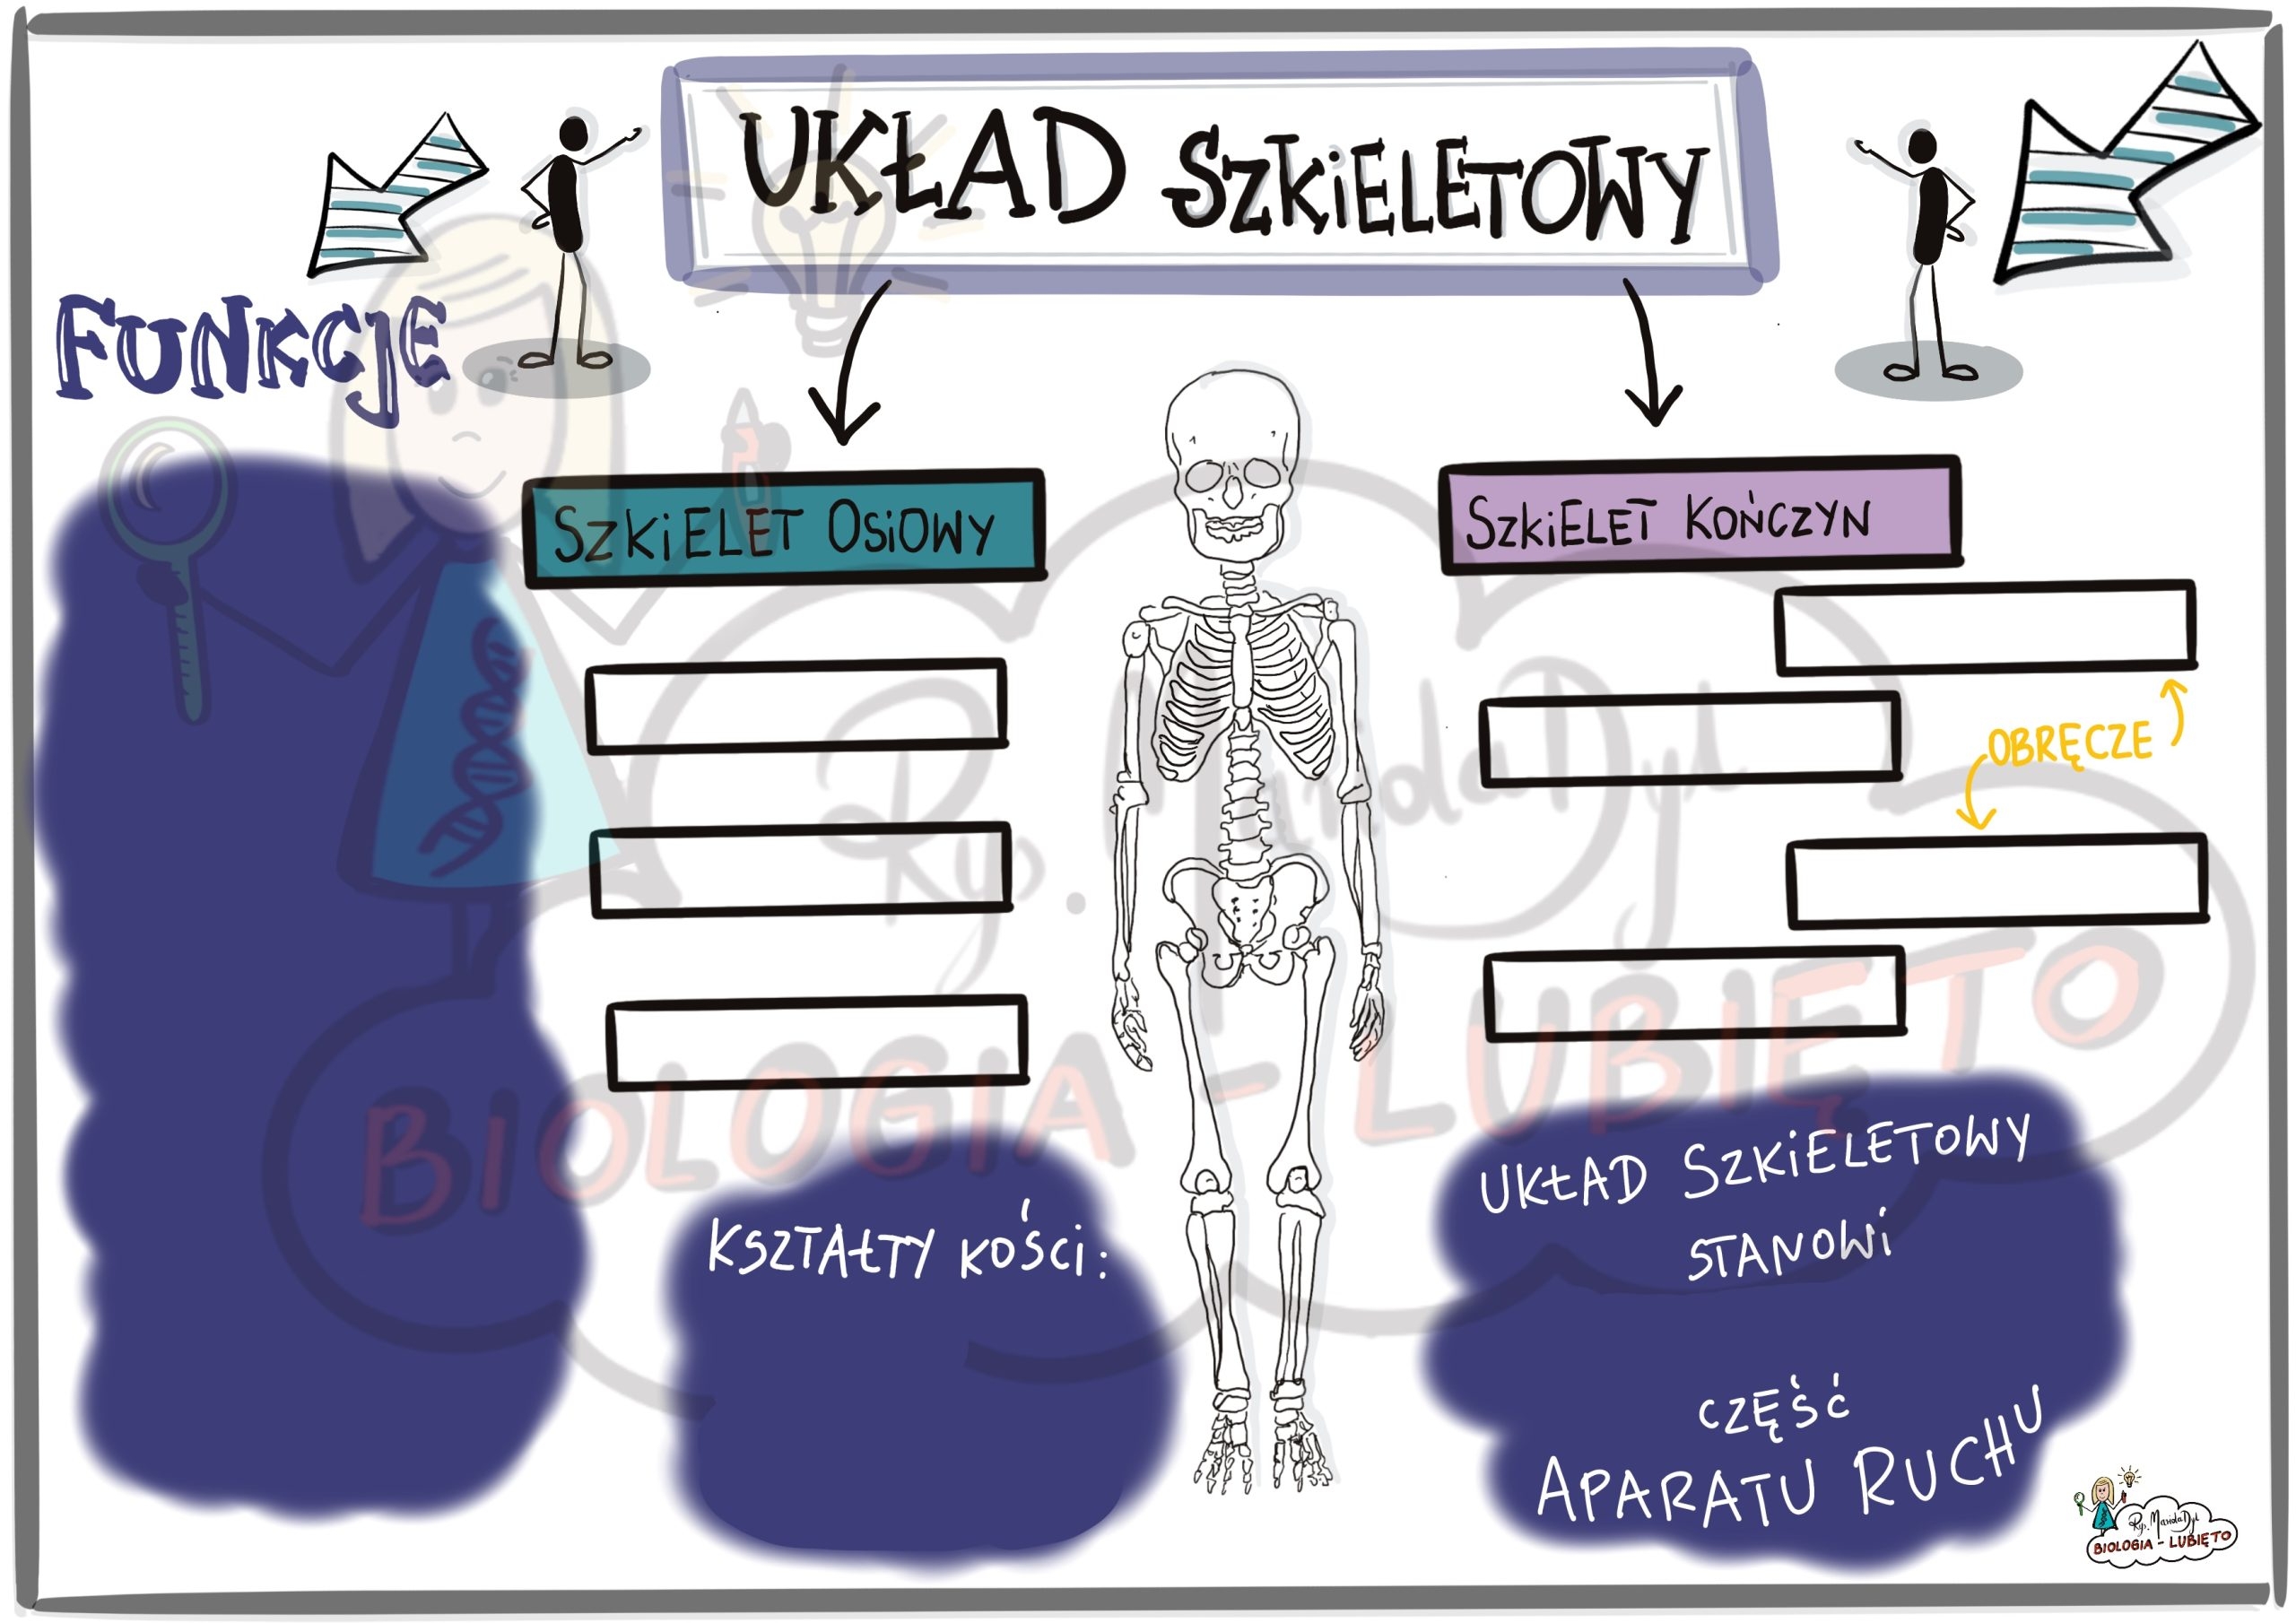 UKŁAD SZKiELETOWY
FUNKCJE
SZKiELET OSiOWY
SZKiELET KOŃCZYN
OBRĘCZE
KSZTAŁTY KOŚCi:
UKŁAD SZKiELETOWY
STANOWi
CZĘŚĆ
APARATU RUCHU
Rys. Mariola Dyl
BIOLOGIA - LUBIĘ TO
Rys. Mariola Dyl
BIOLOGIA - LUBIĘ TO